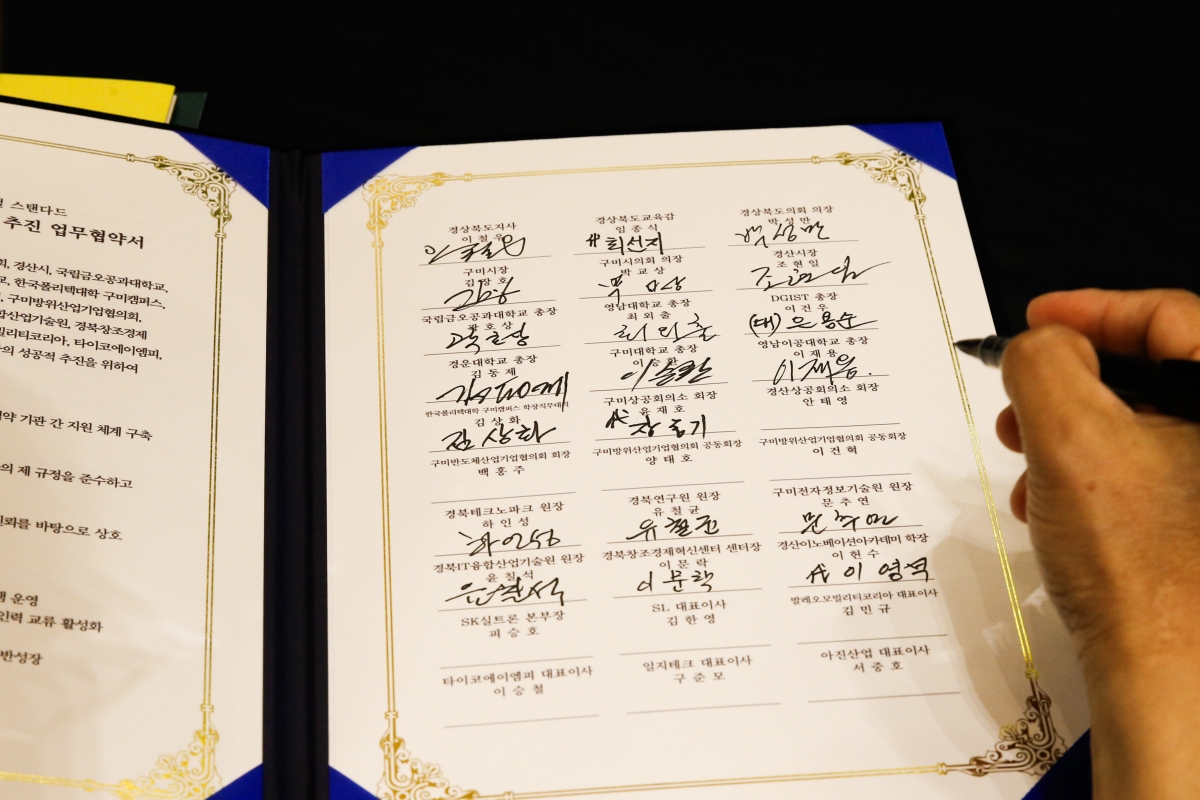 스탠다드
추진 업무협약서
경산시, 국립금오공과대학교,
한국폴리텍대학 구미캠퍼스,
구미방위산업기업협의회,
경북창조경제
타이코에이엠피,
성공적 추진을 위하여
기관 간 지원 체계 구축
제 규정을 준수하고
바탕으로 상호
운영
인력 교류 활성화
경상북도지사 경상북도교육감 경상북도의회 의장
이철우 임종식 박성만
이철우 代 최선지 박성만
구미시장 구미시의회 의장 경산시장
김장호 박교상 조현일
조현일
국립금오공과대학교 총장 영남대학교 총장 DGIST 총장
곽호상 최외출 이건우
곽호상 최외출 (대)은용순
경운대학교 총장 구미대학교 총장 영남이공대학교 총장
김동제 이승환 이재용
김동제 이승환 이재용.
한국폴리텍대학 구미캠퍼스 학장직무대리 구미상공회의소 회장 경산상공회의소 회장
김상화 윤재호 안태영
김상화 代
구미반도체산업기업협의회 회장 구미방위산업기업협의회 공동회장 구미방위산업기업협의회 공동회장
백홍주 양태호 이건혁
경북테크노파크 원장 경북연구원 원장 구미전자정보기술원 원장
하인성 유철균 문추연
하인성 유철균 문추연
경북IT융합산업기술원 원장 경북창조경제혁신센터 센터장 경산이노베이션아카데미 학장
윤칠석 이문락 이헌수
윤칠석 이문락 代 이영석
SK실트론 본부장 SL 대표이사 발레오모빌리티코리아 대표이사
피승호 김한영 김민규
타이코에이엠피 대표이사 일지테크 대표이사 아진산업 대표이사
이승철 구준모 서중호